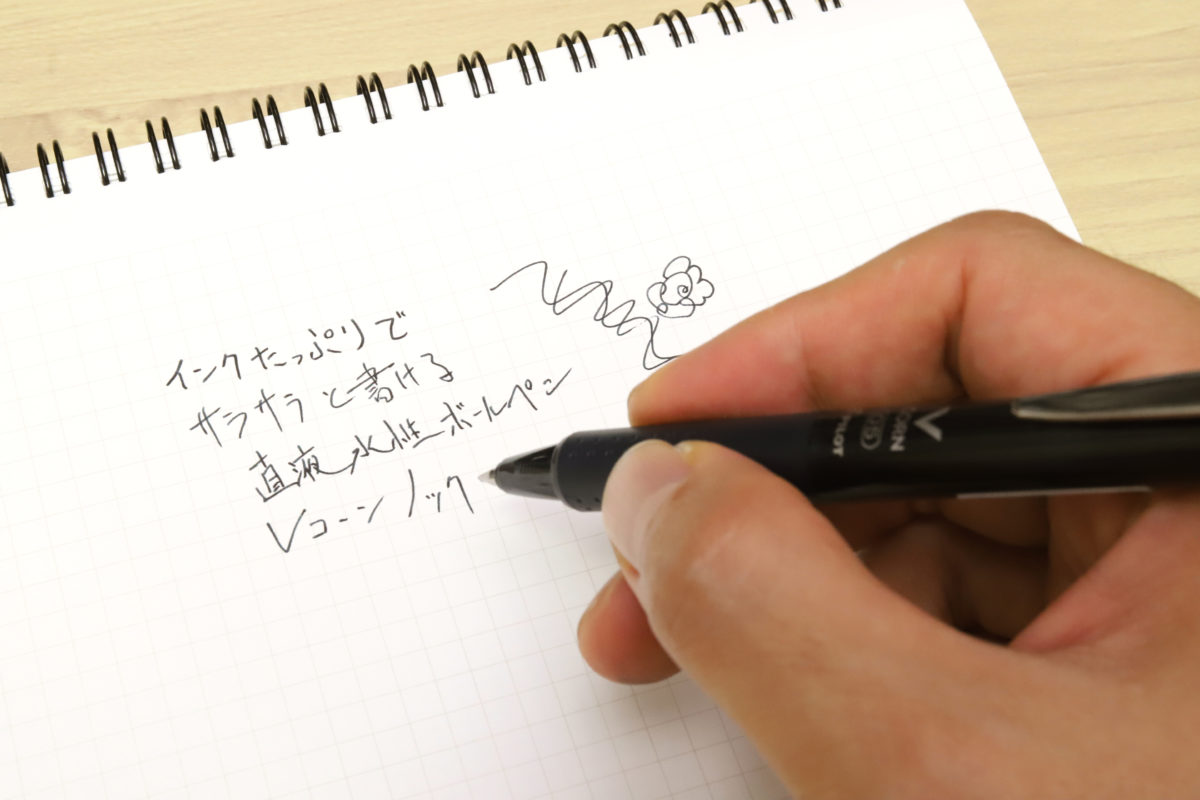 インクたっぷりで
サラサラと書ける
直液水性ボールペン
Vコーン ノック
V CORN
05
PILOT